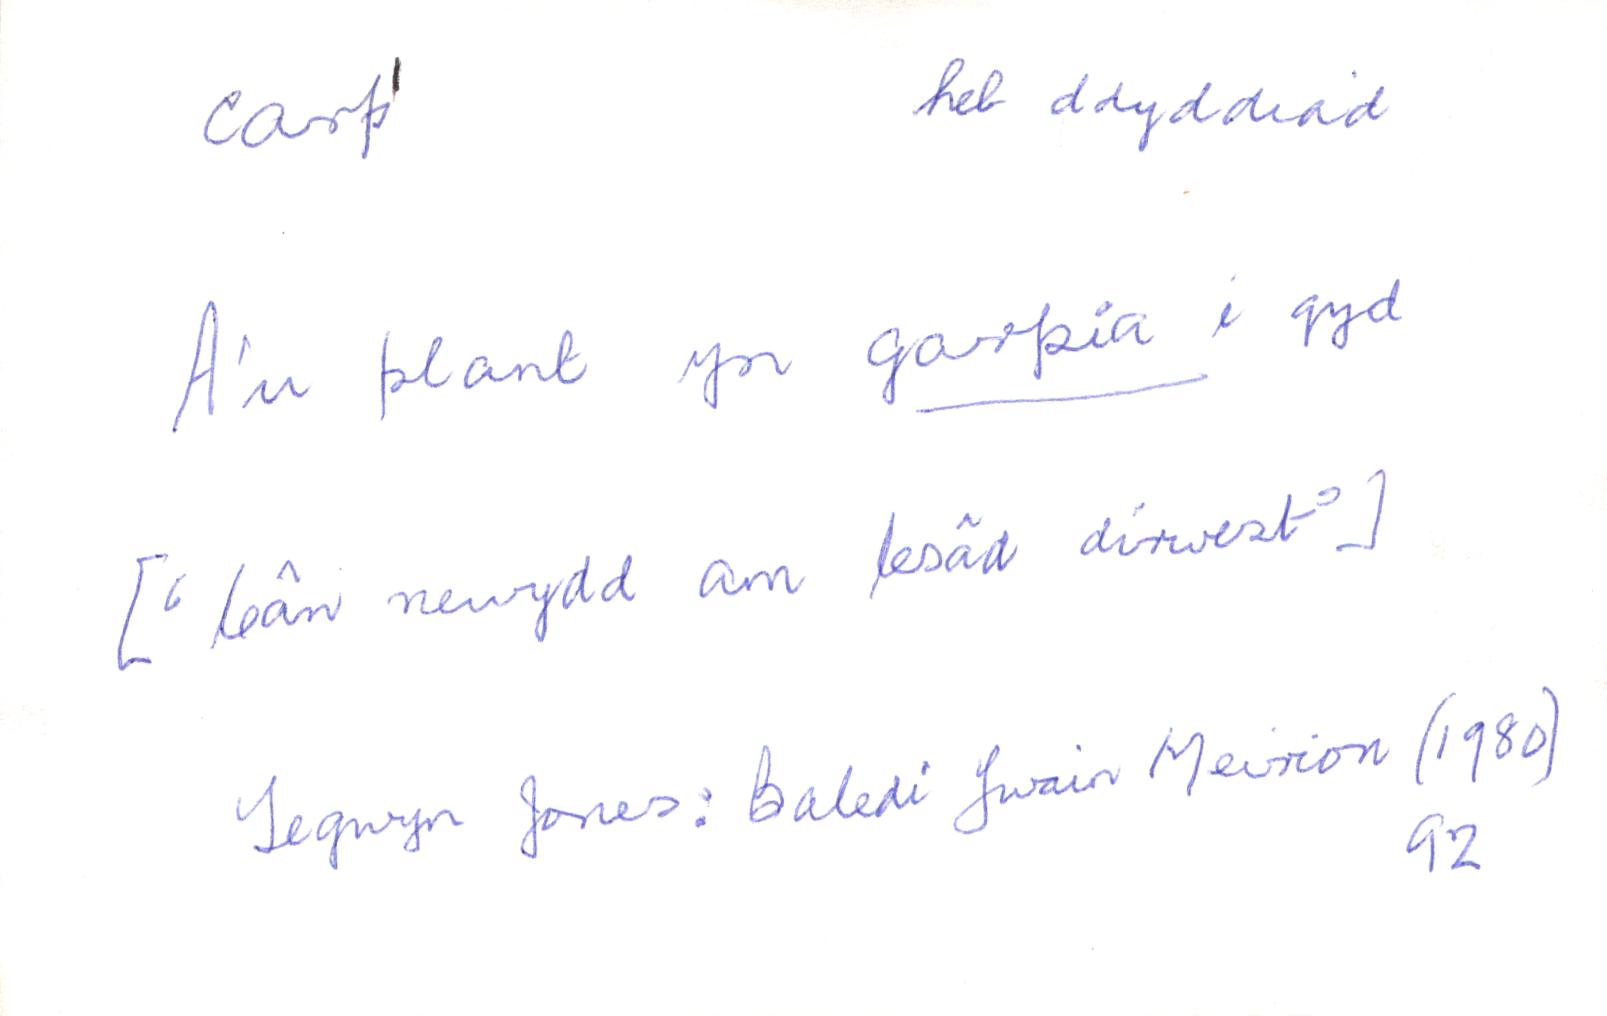 carp¹ heb ddyddiad
A'u plant yn garpia i gyd
['Cân newydd am lesâd dirwest']
Tegwyn Jones: Baledi Ywain Meirion (1980)
92